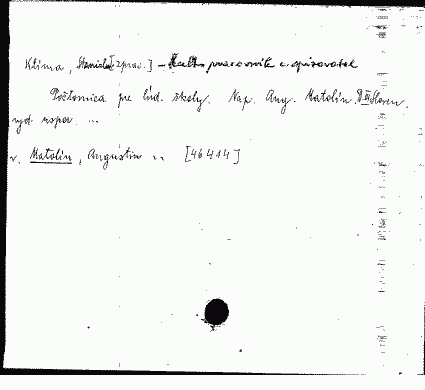 Klíma, Stanislav [zprac.] – kult. pracovník a spisovatel
Počtovnica pre ľud. školy. Nap. Aug. Matolín. II. Sloven.
vyd. uspor. ...
v. Matolín, Augustin .. [46414]